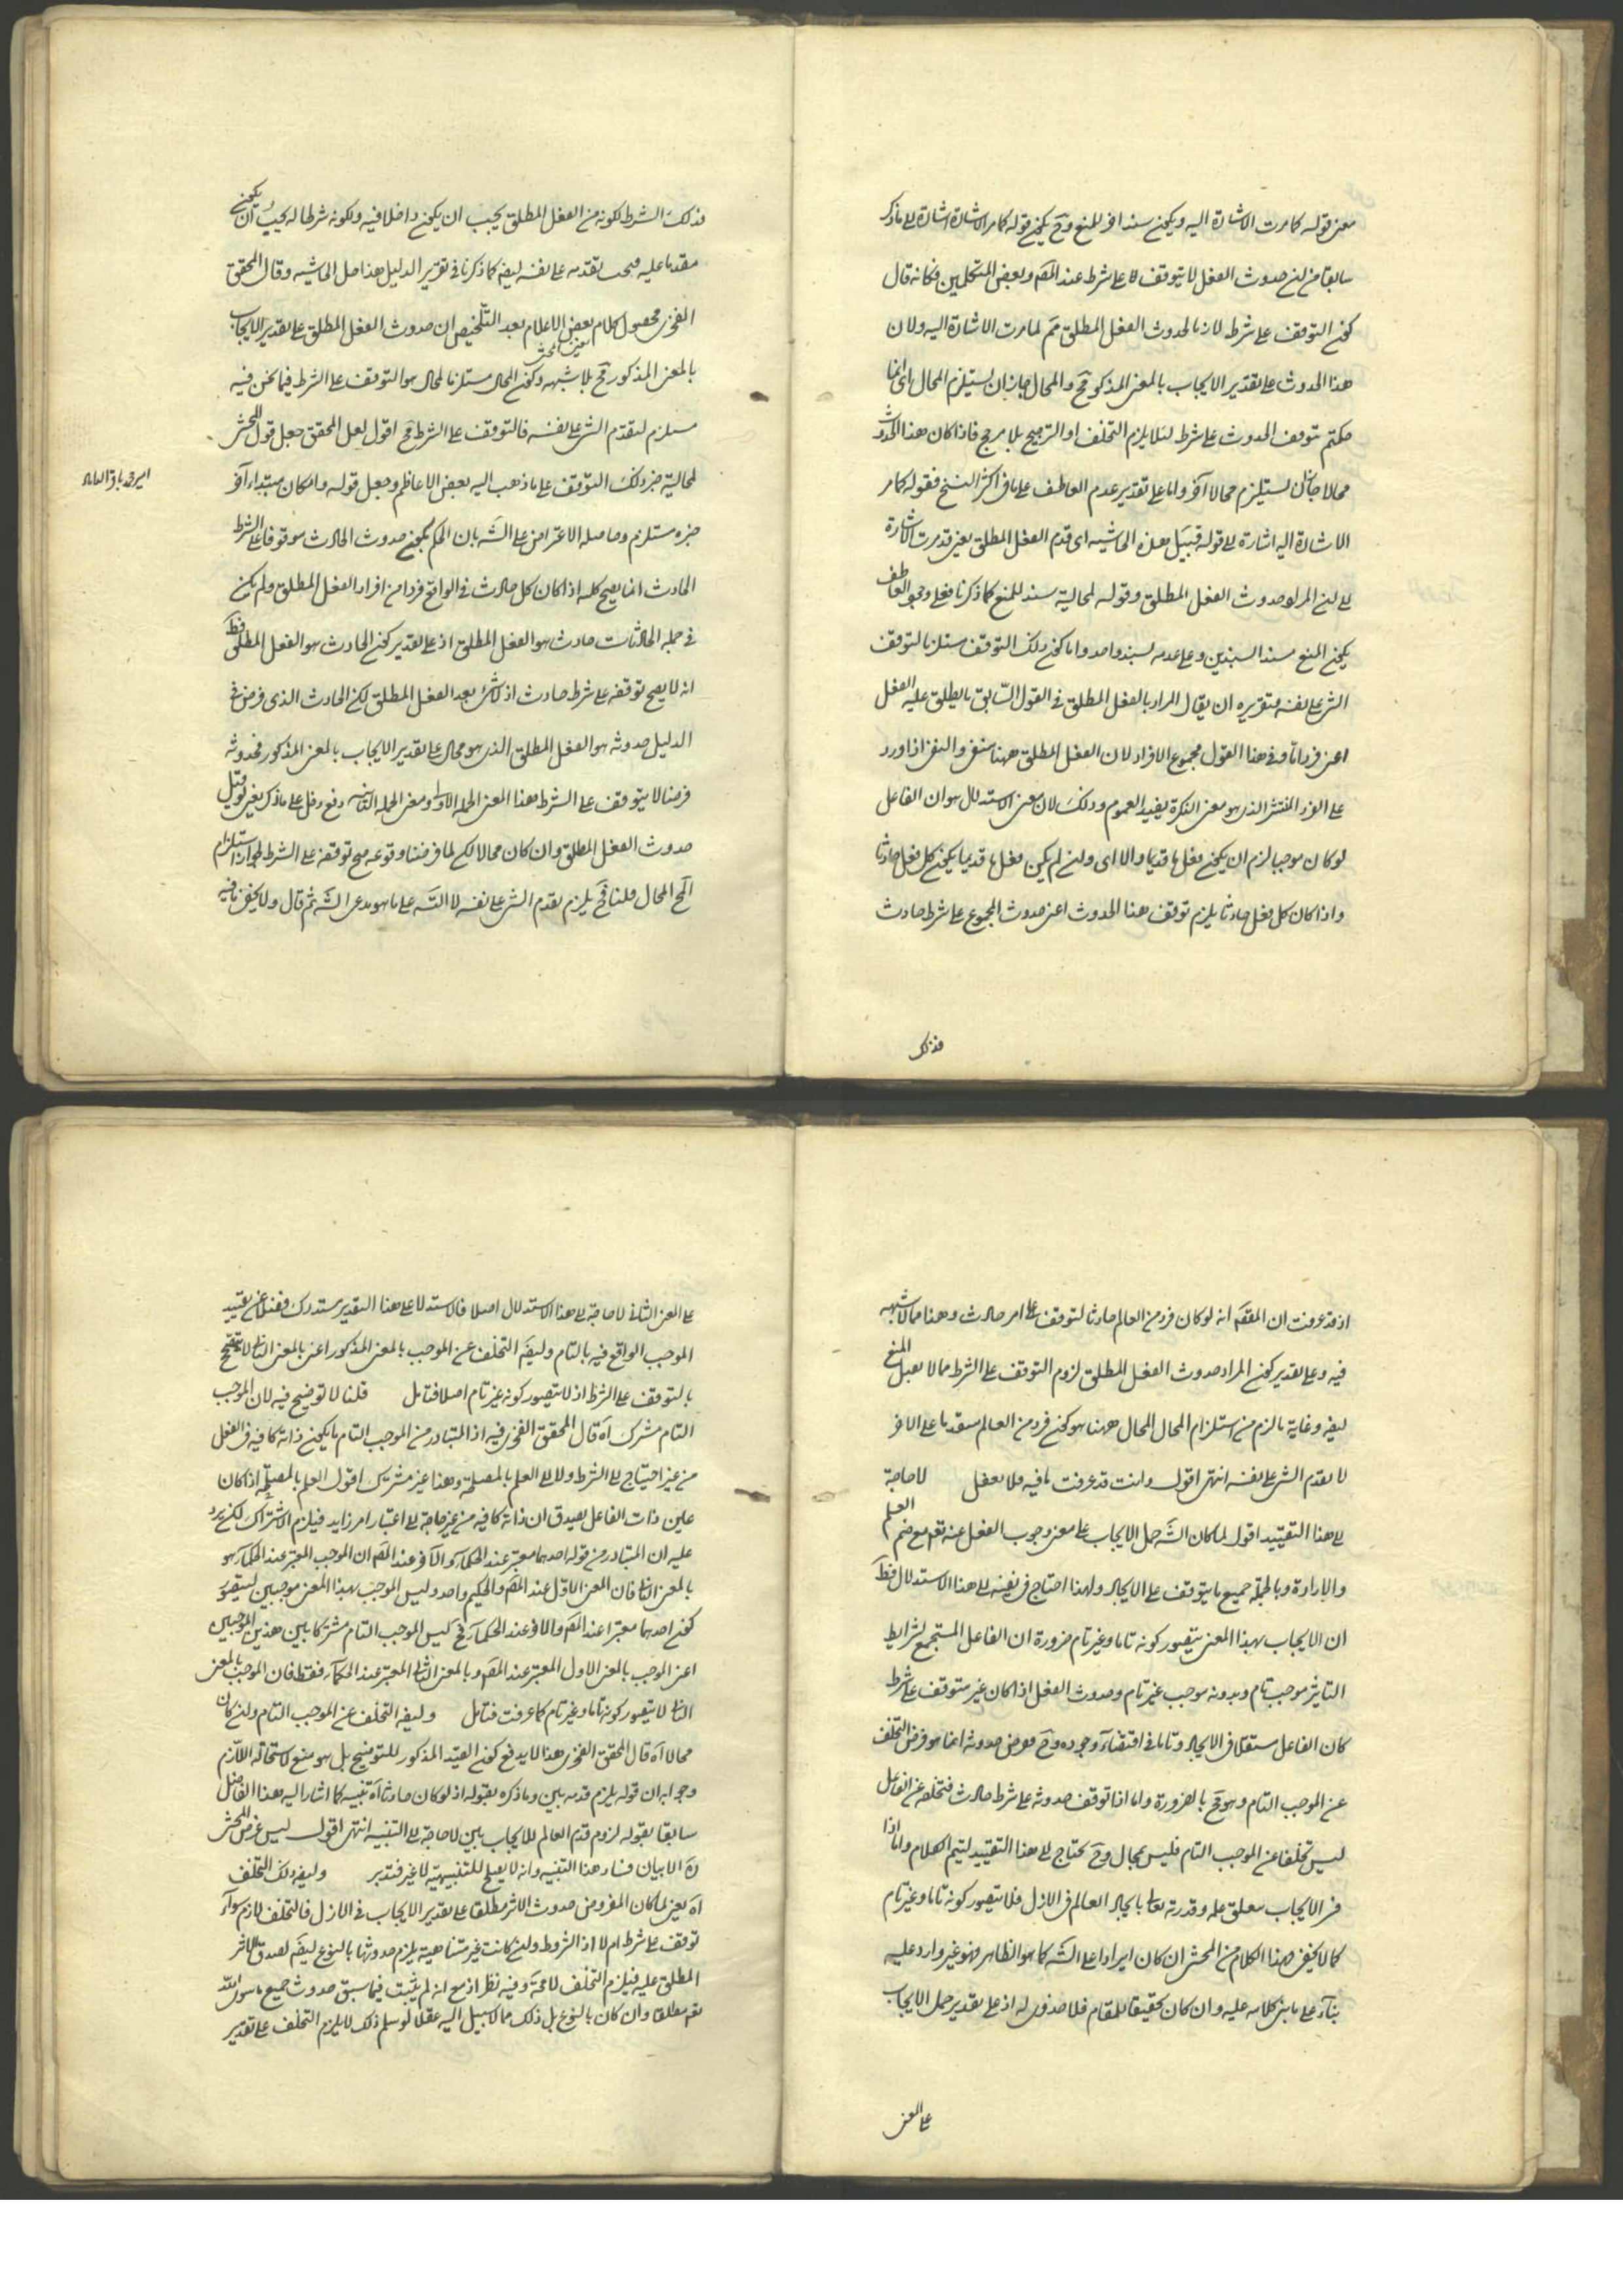 معنى قوله كما مرت الاشارة اليه ويكون سندا آخر للمنع وح يكون قوله كما مر الاشارة اشارة الى ما ذكر
سابقا من ان حدوث الفعل لا يتوقف على شرط عند المصَ وبعض المتكلمين فكانه قال
كون التوقف على شرط لازما لحدوث الفعل المطلق مَم لما مرت الاشارة اليه ولان
هذا الحدوث على تقدير الايجاب بالمعنى المذكور مَح والمحال جاز ان يستلزم المحال اى انما
حكمتم بتوقف الحدوث على شرط لئلا يلزم التخلف او الترجيح بلا مرجح فاذا كان هذا الحدوث
محالا جاز ان يستلزم محالا آخر واما على تقدير عدم العاطف على ما فى اكثر النسخ فقوله كما مر
الاشارة اليه اشارة الى قوله قبيل هذه الحاشيه اى قدم الفعل المطلق يعنى قد مرت الاشارة
الى ان المراد حدوث الفعل المطلق وقوله لمحالية سند للمنع كما ذكرنا فعلى وجود العاطف
يكون المنع مسندا لسندين وعلى عدمه لسند واحد واما كون ذلك التوقف مستلزما لتوقف
الشئ على نفسه فتقريره ان يقال المراد بالفعل المطلق فى القول السابق ما يطلق عليه الفعل
اعنى فردا ما وفى هذا القول مجموع الافراد لان الفعل المطلق ههنا منفى والنفى اذا ورد
على الفرد المنتشر الذى هو معنى النكرة يفيد العموم وذلك لان معنى الاستدلال هو ان الفاعل
لو كان موجبا لزم ان يكون فعل ما قديما والا اى وان لم يكن فعل ما قديما يكون كل فعل حادثا
واذا كان كل فعل حادثا يلزم توقف هذا الحدوث اعنى حدوث المجموع على شرط حادث
فذلك
فذلك الشرط لكونه من الفعل المطلق يجب ان يكون داخلا فيه ولكونه شرطا له يجب ان يكون
مقدما عليه فيجب تقدمه على نفسه ايضا كما ذكرنا فى تقرير الدليل هذا حل الحاشيه وقال المحقق
الفخرى محصول كلام بعض الاعلام بعد التلخيص ان حدوث الفعل المطلق على تقدير الايجاب
بالمعنى المذكور مَح بلا شبهة وكون المحال مستلزما لمحال هو التوقف على الشرط فيما نحن فيه
مستلزم لتقدم الشئ على نفسه فالتوقف على الشرط مَح اقول لعل المحقق جعل قول المحشى
لمحالية خبر ذلك التوقف على ما ذهب اليه بعض الاعاظم وجعل قوله وامكان مبتداء آخر
خبره مستلزم وحاصله الاعتراض على الشَه بان الحكم بكون حدوث الحادث موقوفا على الشرط
الحادث انما يصح كله اذا كان كل حادث فى الواقع فردا من افراد الفعل المطلق ولم يكن
فى جملة الحادثات حادث هو الفعل المطلق اذ على تقدير كون الحادث هو الفعل المطلق فظَ
انه لا يصح توقفه على شرط حادث اذ لا شئ بعد الفعل المطلق لكن الحادث الذى فرض فى
الدليل حدوثه هو الفعل المطلق الذى هو محال على تقدير الايجاب بالمعنى المذكور فحدوثه
فرضا لا يتوقف على الشرط هذا المعنى الجملة الاولى ومعنى الجملة الثانية دفع دخل على ما ذكر يعنى لو قيل
حدوث الفعل المطلق وان كان محالا لكن لما فرضنا وقوعه صح توقفه على الشرط لجواز استلزام
المح المحال قلنا فح يلزم تقدم الشئ على نفسه لا التسَ على ما هو مدعى الشَه ثم قال ولا يخفى ما فيه
امير محمد باقر
اذ قد عرفت ان المقصَ انه لو كان فرد من العالم حادثا لتوقف على امر حادث وهذا مما لا شبهة
فيه وعلى تقدير كون المراد حدوث الفعل المطلق لزوم التوقف على الشرط مما لا يقبل المنع
ايضا وغاية ما لزم من استلزام المحال المحال ههنا هو كون فرد من العالم مقدما على الآخر
لا تقدم الشئ على نفسه انتهى اقول وانت قد عرفت ما فيه فلا تغفل لا حاجة
الى هذا التقييد اقول لما كان الشَه حمل الايجاب على معنى وجوب الفعل عنه تعَ مع ضم العلم
والارادة وبالجملة جميع ما يتوقف على الايجاد ولهذا احتاج فى نفيه الى هذا الاستدلال فظَ
ان الايجاب بهذا المعنى يتصور كونه تاما وغير تام ضرورة ان الفاعل المستجمع لشرايط
التاثير موجب تام وبدونه موجب غير تام وحدوث الفعل اذا كان غير متوقف على شرط
كان الفاعل مستقلا فى الايجاد وتاما فى اقتضاء وجوده وح فرض حدوثه انما هو فرض التخلف
عن الموجب التام وهو مَح بالضرورة واما اذا توقف حدوثه على شرط حادث فتخلفه عن الفاعل
ليس تخلفا عن الموجب التام فليس بمحال وح يحتاج الى هذا التقييد ليتم الكلام واما اذا
فسر الايجاب بتعلق علمه وقدرته تعالى بايجاد العالم فى الازل فلا يتصور كونه تاما وغير تام
كما لا يخفى فهذا الكلام من المحشى ان كان ايرادا على الشَه كما هو الظاهر فهو غير وارد عليه
بناء على ما بنى كلامه عليه وان كان تحقيقا للمقام فلا حذف له اذ على تقدير حمل الايجاب
على المعنى
على المعنى الثانى لا حاجة الى هذا الاستدلال اصلا فالاستدلال على هذا التقدير مستدرك فضلا عن تقييد
الموجب الواقع فيه بالتام وايضَ التخلف عن الموجب بالمعنى المذكور اعنى بالمعنى الثانى لا يتضح
بالتوقف على الشرط اذ لا يتصور كونه غير تام اصلا فتامل قلنا لا توضيح فيه لان الموجب
التام مشترك اه قال المحقق الفخرى فيه اذ المتبادر من الموجب التام ما يكون ذاته كافية فى الفعل
من غير احتياج الى الشرط ولا الى العلم بالمصلحة وهذا غير مشترك اقول العلم بالمصلحة اذا كان
عين ذات الفاعل يصدق ان ذاته كافية من غير حاجة الى اعتبار امر زايد فيلزم الاشتراك لكن يرد
عليه ان المتبادر من قوله احدهما معتبر عند الحكماء والآخر عند المصَ ان الموجب المعتبر عند الحكماء هو
بالمعنى الثانى فان المعنى الاول عند المصَ والحكيم واحد وليس الموجب بهذا المعنى موجبين ليتصور
كون احدهما معتبرا عند المصَ والآخر عند الحكماء فح ليس الموجب التام مشتركا بين هذين الموجبين
اعنى الموجب بالمعنى الاول المعتبر عند المصَ وبالمعنى الثانى المعتبر عند الحكماء فقط فان الموجب بالمعنى
الثانى لا يتصور كونه تاما وغير تام كما عرفت فتامل وايضا التخلف عن الموجب التام وان كان
محالا اه قال المحقق الفخرى هذا لا يدفع كون القيد المذكور للتوضيح بل هو منع لاستحالة اللازم
وجوابه ان قوله يلزم قدمه بين وما ذكره بقوله اذ لو كان حادثا اه تنبيه كما اشار اليه هذا الفاضل
سابقا بقوله لزوم قدم العالم للايجاب بين لا حاجة الى التنبيه انتهى اقول ليس غرض المحشى
رَه الا بيان فساد هذا التنبيه وانه لا يصلح للتنبيهية لا غير فتدبر وايضا ذلك التخلف
اه يعنى لما كان المفروض حدوث الاثر مطلقا على تقدير الايجاب فى الازل فالتخلف لازم سواء
توقف على شرط ام لا اذ الشروط وان كانت غير متناهية يلزم حدوثها بالنوع ايضَ لصدق الاثر
المطلق عليه فيلزم التخلف لا محة وفيه نظر اذ مع انه لم يثبت فيما سبق حدوث جميع ما سوى الله
تعَ مطلقا وان كان بالنوع بل ذلك مما لا سبيل اليه عقلا لو سلم ذلك لا يلزم التخلف على تقدير